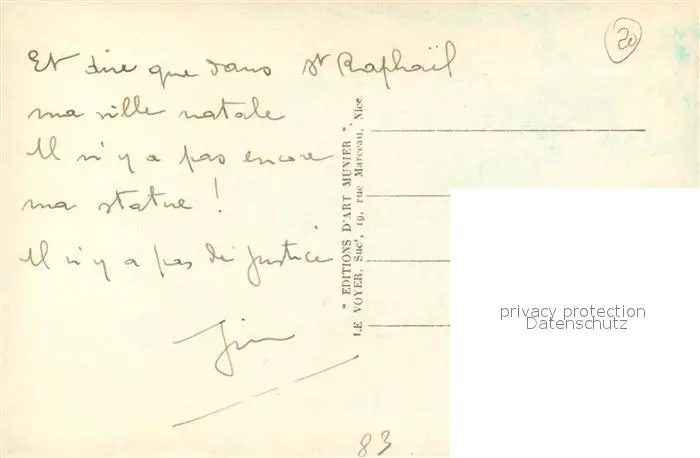 Et dire que dans St Raphaël
ma ville natale
Il n'y a pas encore
ma statue !
Il n'y a pas de justice
20
" EDITIONS D'ART MUNIER ",
LE VOYER, Succr, 19, rue Marceau, Nice
privacy protection
Datenschutz
83